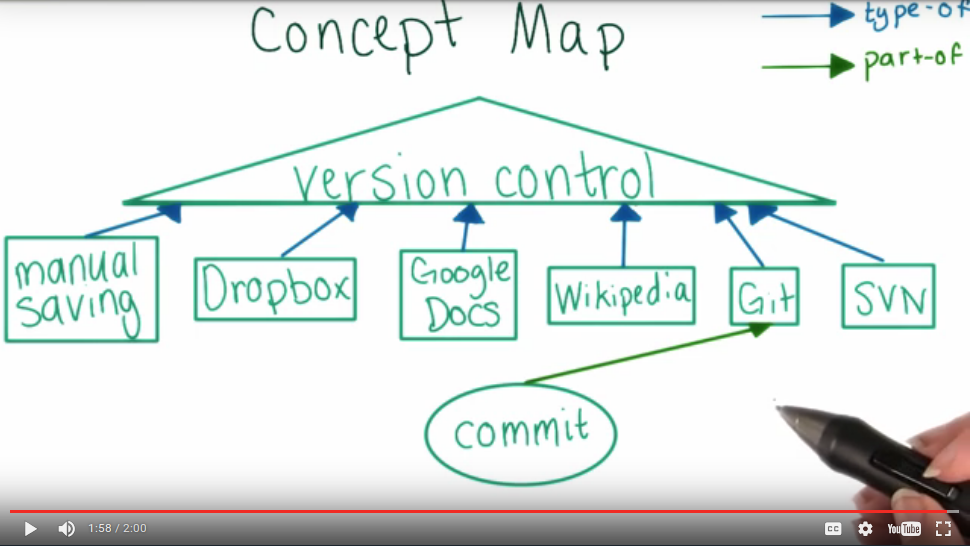 Concept Map
type-of
part-of
version control
manual
saving
Dropbox
Google
Docs
Wikipedia
Git
SVN
commit
1:58 / 2:00
CC
YouTube